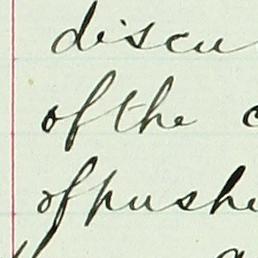 discu
of the c
of pushe